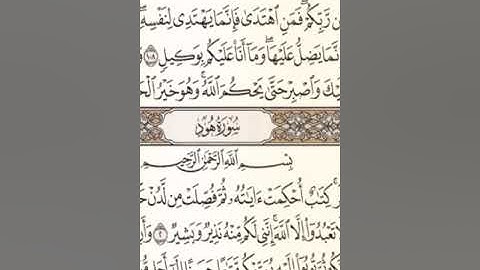 ن رَّبِّكُمْ ۖ فَمَنِ ٱهْتَدَىٰ فَإِنَّمَا يَهْتَدِى لِنَفْسِهِۦ ۖ
نَّمَا يَضِلُّ عَلَيْهَا ۖ وَمَآ أَنَا۠ عَلَيْكُم بِوَكِيلٍ ١٠٨
لَيْكَ وَٱصْبِرْ حَتَّىٰ يَحْكُمَ ٱللَّهُ ۚ وَهُوَ خَيْرُ ٱلْحَ
سُورَةُ هُودٍ
بِسْمِ ٱللَّهِ ٱلرَّحْمَٰنِ ٱلرَّحِيمِ
كِتَٰبٌ أُحْكِمَتْ ءَايَٰتُهُۥ ثُمَّ فُصِّلَتْ مِن لَّدُنْ حَ
ا تَعْبُدُوٓا۟ إِلَّا ٱللَّهَ ۚ إِنَّنِى لَكُم مِّنْهُ نَذِيرٌ وَبَشِيرٌ ٢ وَأَنِ